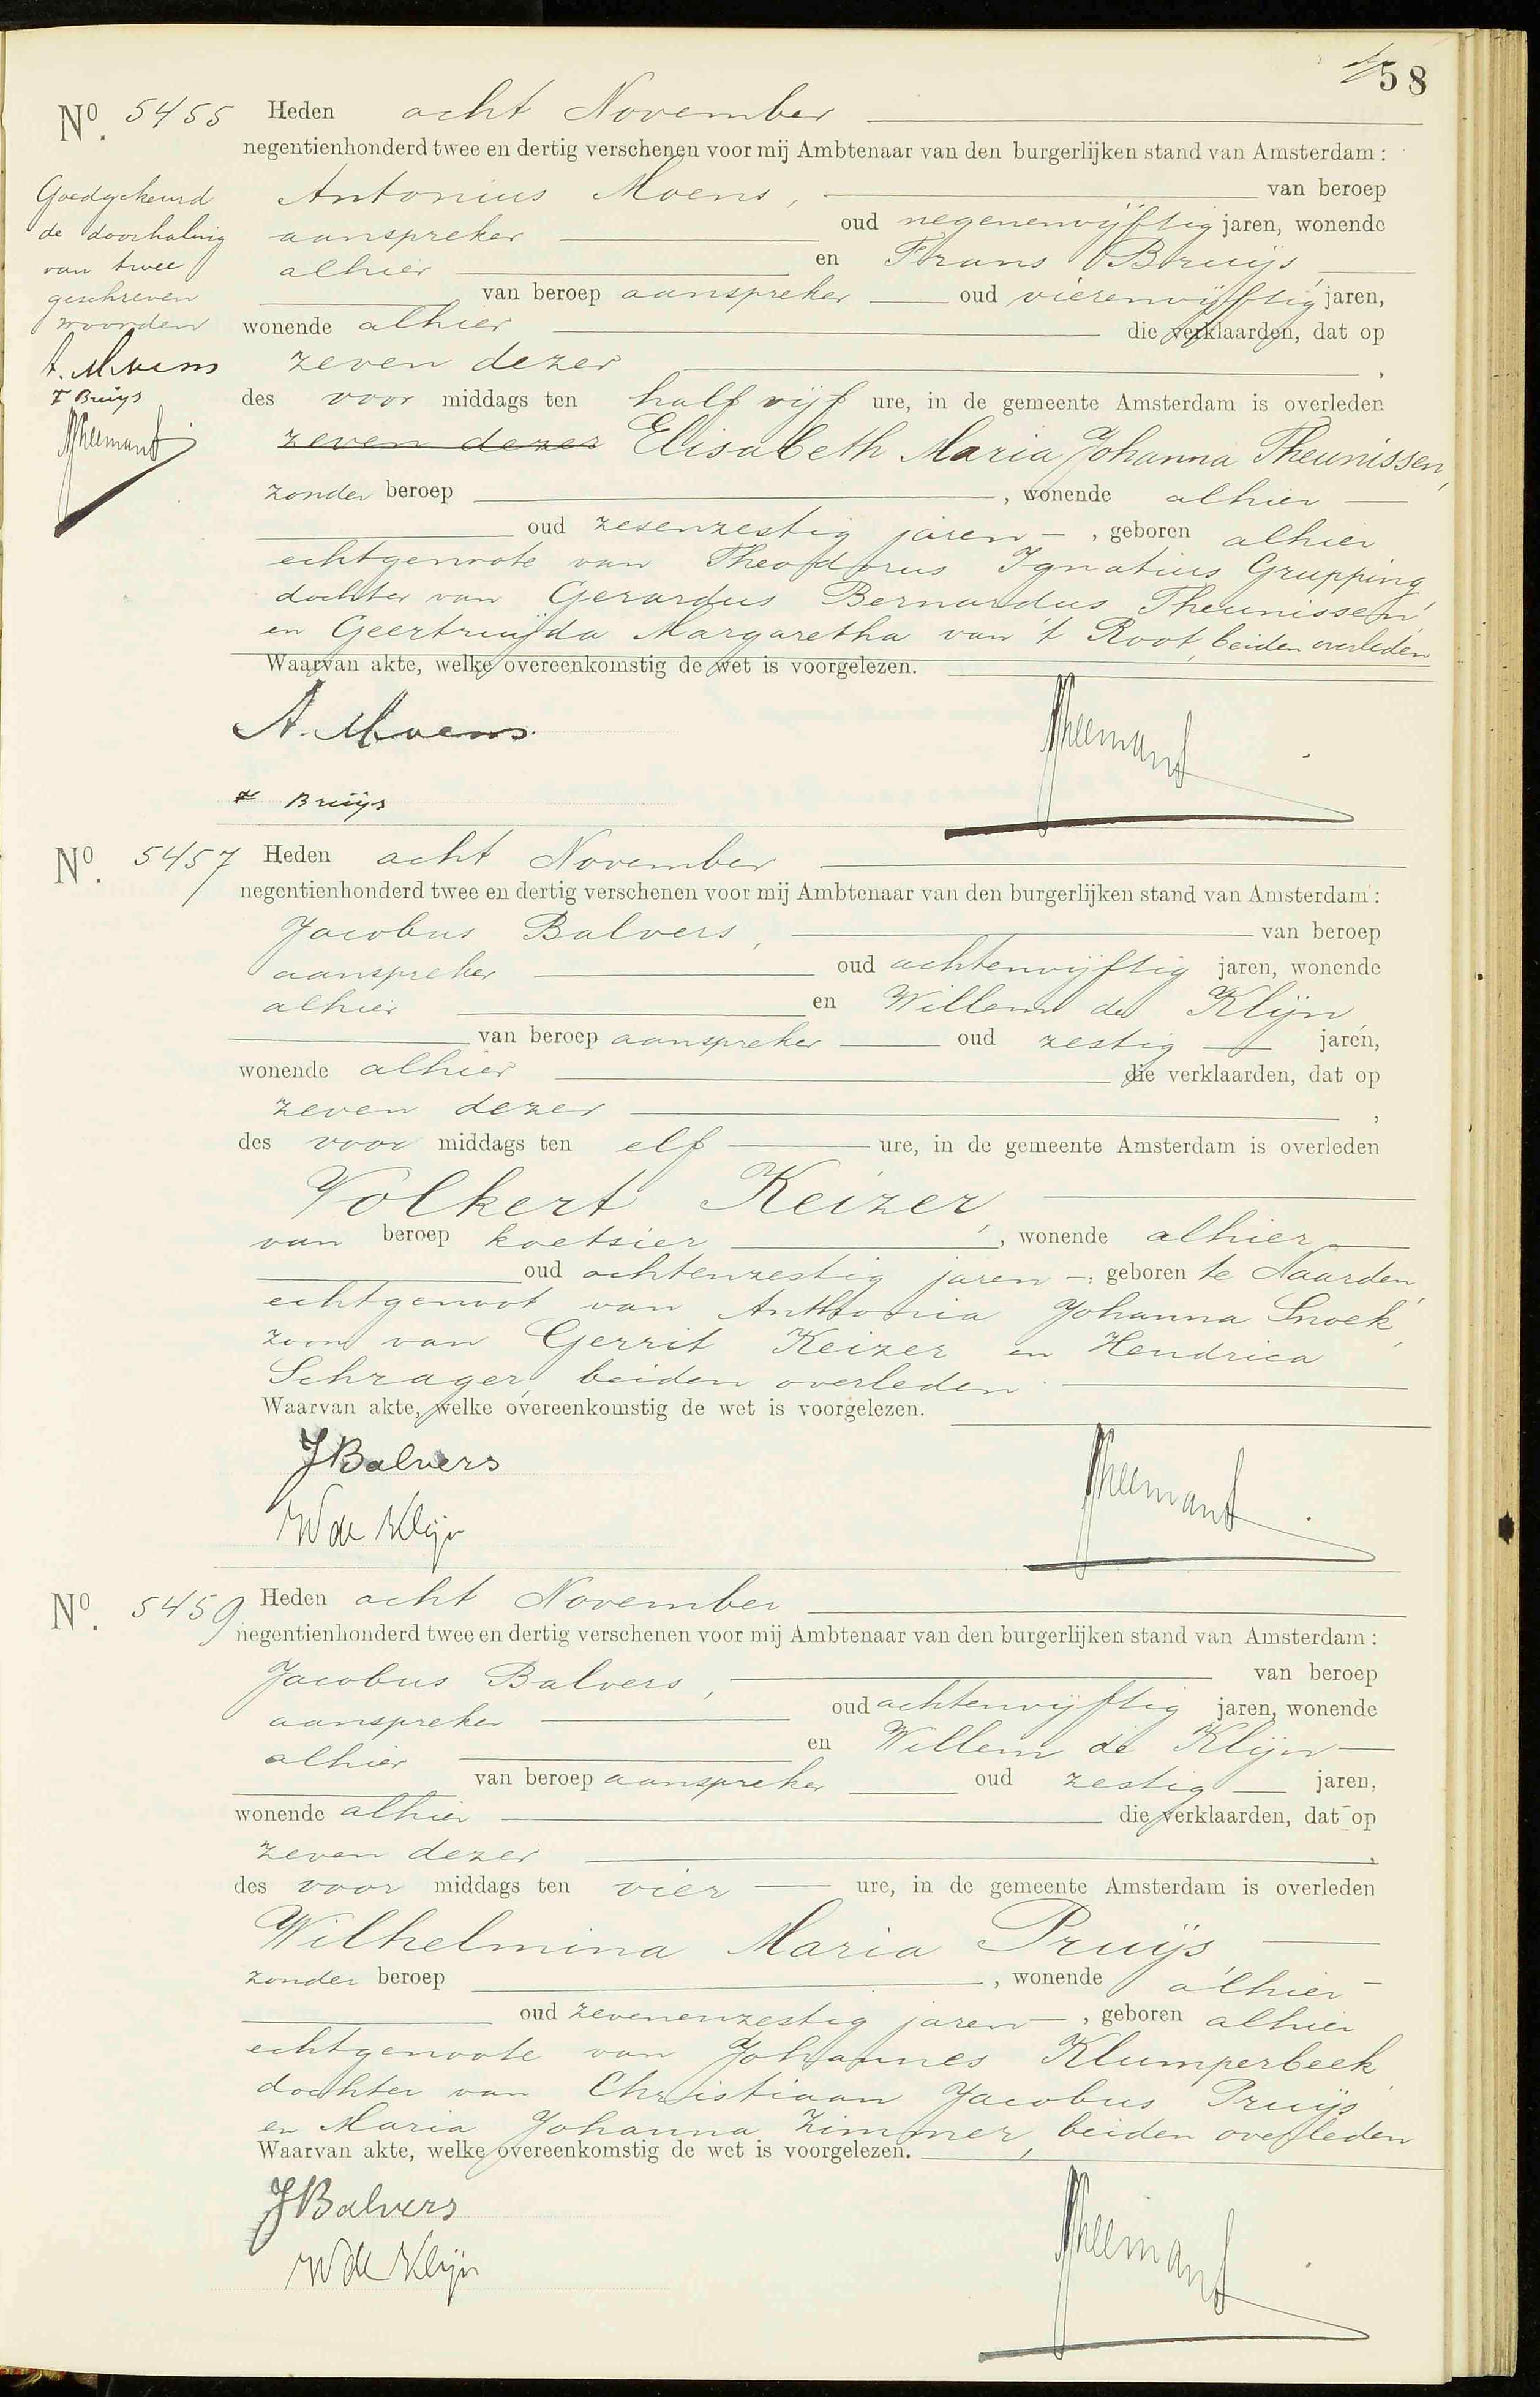 58
No. 5455 Heden acht November
negentienhonderd twee en dertig verschenen voor mij Ambtenaar van den burgerlijken stand van Amsterdam:
Antonius Moens, van beroep
aanspreker oud negenenvijftig jaren, wonende
alhier en Frans Bruijs
van beroep aanspreker oud vierenvijftig jaren,
wonende alhier die verklaarden, dat op
zeven dezer,
des voor middags ten half vijf ure, in de gemeente Amsterdam is overleden
zeven dezer Elisabeth Maria Johanna Theunissen,
zonder beroep, wonende alhier
oud zesenzestig jaren, geboren alhier
echtgenoote van Theodorus Ignatius Grupping,
dochter van Gerardus Bernardus Theunissen
en Geertruijda Margaretha van 't Root, beiden overleden
Waarvan akte, welke overeenkomstig de wet is voorgelezen.
Goedgekeurd
de doorhaling
van twee
geschreven
woorden
A. Moens
F Bruijs
A. Moens.
F Bruijs
No. 5457 Heden acht November
negentienhonderd twee en dertig verschenen voor mij Ambtenaar van den burgerlijken stand van Amsterdam:
Jacobus Balvers, van beroep
aanspreker oud achtenvijftig jaren, wonende
alhier en Willem de Klijn
van beroep aanspreker oud zestig jaren,
wonende alhier die verklaarden, dat op
zeven dezer,
des voor middags ten elf ure, in de gemeente Amsterdam is overleden
Volkert Keizer,
van beroep koetsier, wonende alhier
oud achtenzestig jaren, geboren te Naarden,
echtgenoot van Anthonia Johanna Snoek,
zoon van Gerrit Keizer en Hendrica
Schrager, beiden overleden
Waarvan akte, welke overeenkomstig de wet is voorgelezen.
J Balvers
W de Klijn
No. 5459 Heden acht November
negentienhonderd twee en dertig verschenen voor mij Ambtenaar van den burgerlijken stand van Amsterdam:
Jacobus Balvers, van beroep
aanspreker oud achtenvijftig jaren, wonende
alhier en Willem de Klijn
van beroep aanspreker oud zestig jaren,
wonende alhier die verklaarden, dat op
zeven dezer,
des voor middags ten vier ure, in de gemeente Amsterdam is overleden
Wilhelmina Maria Pruijs,
zonder beroep, wonende alhier
oud zevenenzestig jaren, geboren alhier
echtgenoote van Johannes Klumperbeek,
dochter van Christiaan Jacobus Pruijs
en Maria Johanna Zimmer, beiden overleden
Waarvan akte, welke overeenkomstig de wet is voorgelezen.
J Balvers
W de Klijn